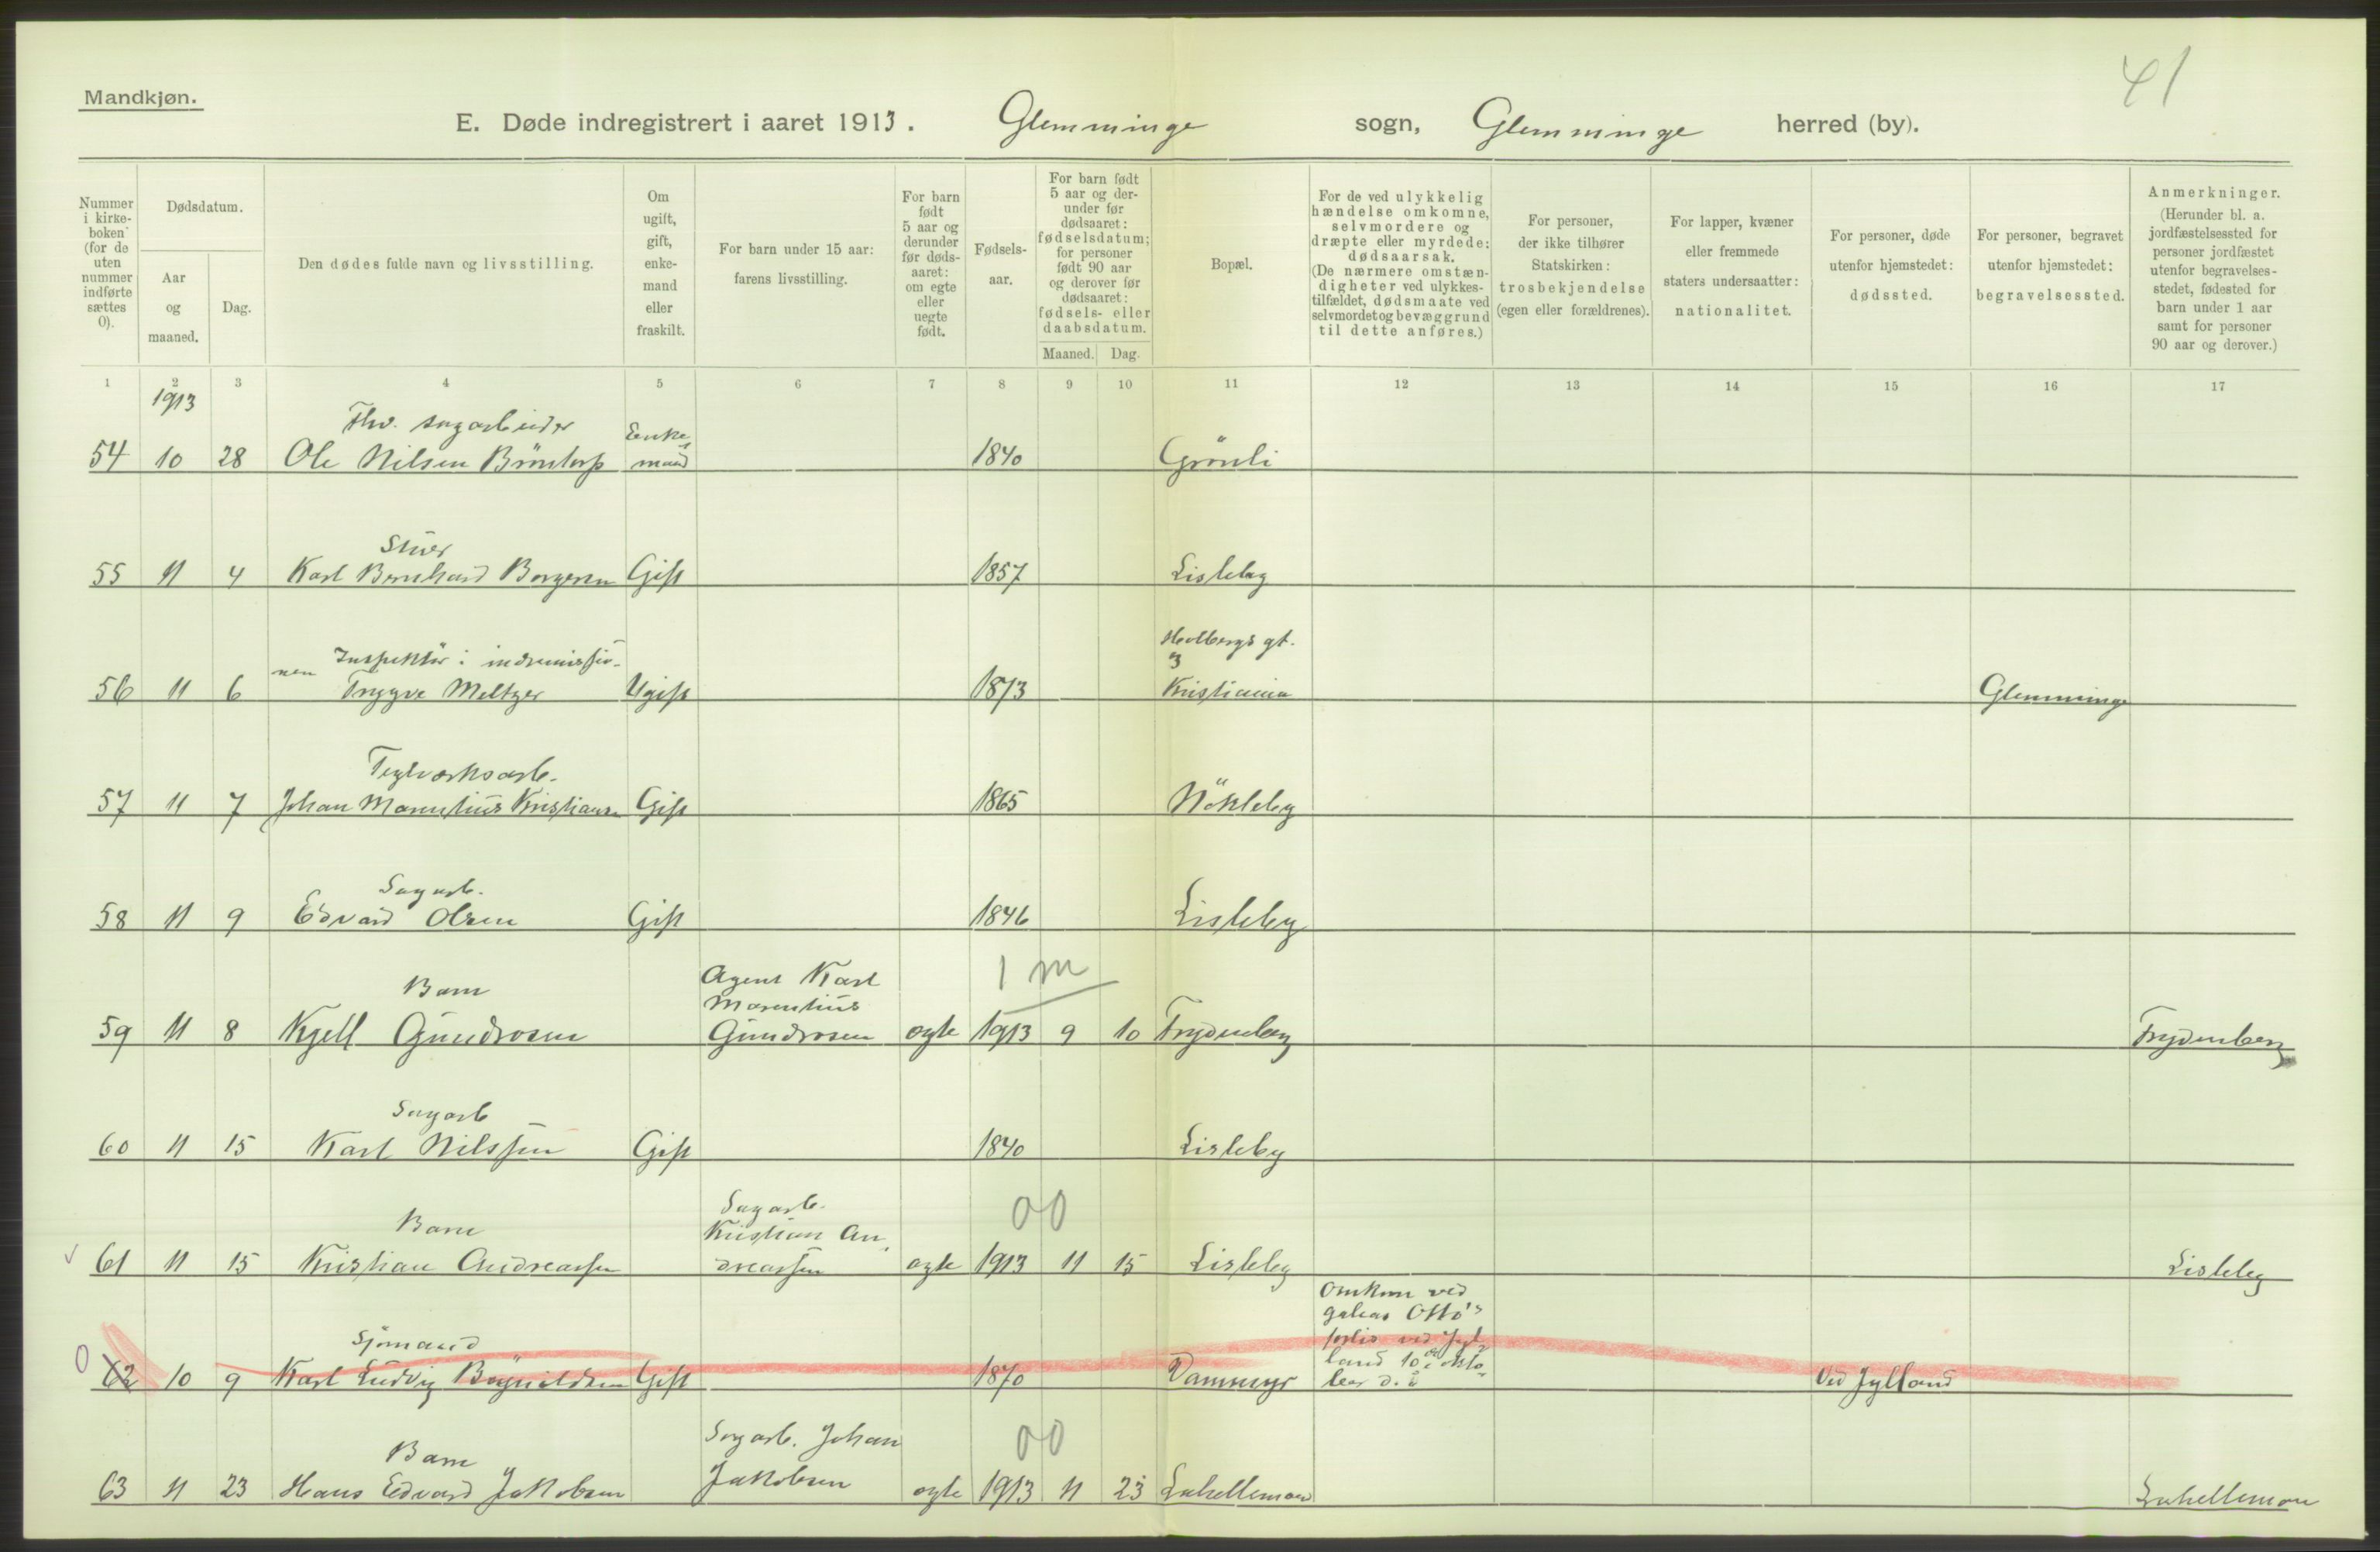 41
Mandkjøn.
E. Døde indregistrert i aaret 1913. Glemminge sogn, Glemminge herred (by).
Nummer i kirke-boken (for de uten nummer indførte sættes 0).
Dødsdatum.
Aar og maaned.
Dag.
Den dødes fulde navn og livsstilling.
Om ugift, gift, enke-mand eller fraskilt.
For barn under 15 aar: farens livsstilling.
For barn født 5 aar og derunder før døds-aaret: om egte eller uegte født.
Fødsels-aar.
For barn født 5 aar og der-under før dødsaaret: fødselsdatum; for personer født 90 aar og derover før dødsaaret: fødsels- eller daabsdatum.
Maaned. Dag.
Bopæl.
For de ved ulykkelig hændelse omkomne, selvmordere og dræpte eller myrdede: dødsaarsak. (De nærmere omstæn-digheter ved ulykkes-tilfældet, dødsmaate ved selvmordet og bevæggrund til dette anføres.)
For personer, der ikke tilhører Statskirken: trosbekjendelse (egen eller forældrenes).
For lapper, kvæner eller fremmede staters undersaatter: nationalitet.
For personer, døde utenfor hjemstedet: dødssted.
For personer, begravet utenfor hjemstedet: begravelsessted.
Anmerkninger. (Herunder bl. a. jordfæstelsessted for personer jordfæstet utenfor begravelses-stedet, fødested for barn under 1 aar samt for personer 90 aar og derover.)
1 2 3 4 5 6 7 8 9 10 11 12 13 14 15 16 17
1913
Fhv. sagarbeider Enke-
54 10 28 Ole Nilsen Bröntorp mand 1840 Grönli
Stuer
55 11 4 Karl Bernhard Borgersen Gift 1857 Lisleby
Inspektör i indremissio- Holbergs gt.
nen 3
56 11 6 Trygve Meltzer Ugift 1873 Kristiania Glemminge
Teglverksarb.
57 11 7 Johan Marentius Kristiansen Gift 1865 Nökleby
Sagarb.
58 11 9 Edvard Olsen Gift 1846 Lisleby
Barn Agent Karl 1 m
Marentius
59 11 8 Kjell Gundrosen Gundrosen egte 1913 9 10 Frydenberg Frydenberg
Sagarb
60 11 15 Karl Nilssen Gift 1840 Lisleby
Barn Sagarb. 00
Kristian An-
61 11 15 Kristian Andreassen dreassen egte 1913 11 15 Lisleby Lisleby
Omkom ved
galeas Otto's
Sjömand forlis ved Jyl-
land 10de okto-
0 62 10 9 Karl Ludvig Gift 1870 Dammyr ber d. å Ved Jylland
Barn Sagarb. Johan 00
63 11 23 Hans Edvard Jakobsen Jakobsen egte 1913 11 23